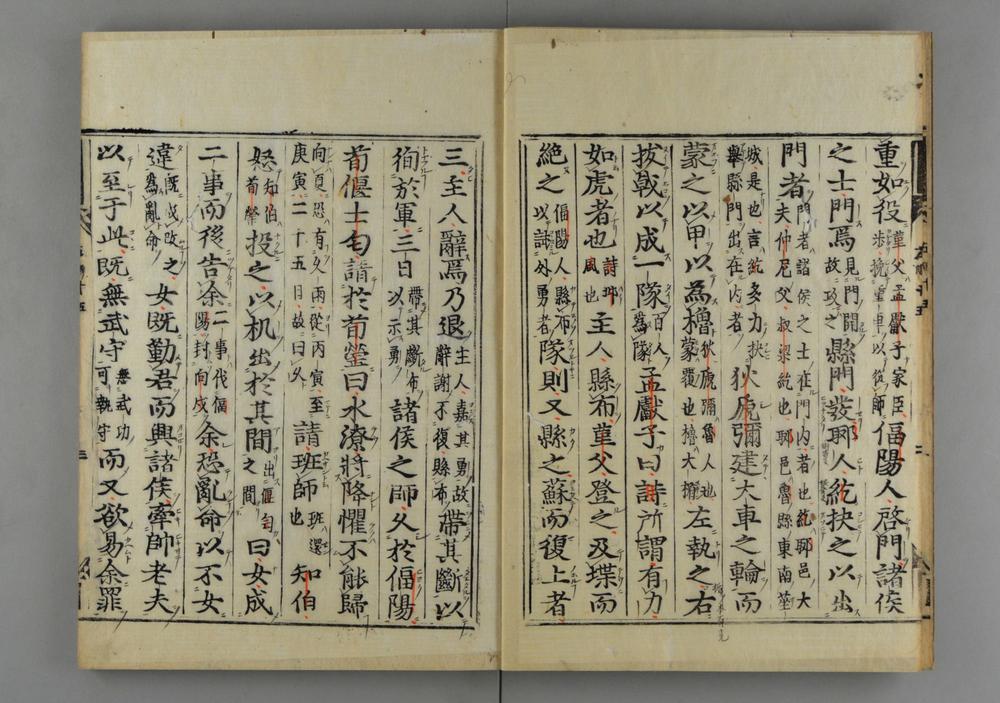 重如役堇父孟獻子家臣步挽重車以從師偪陽人啓門諸侯
之士門焉見門開故攻之縣門發郰人紇抉之以出
門者門者諸侯之士在門內者也紇郰邑大夫仲尼父叔梁紇也郰邑魯縣東南莝
城是也言紇多力抉舉縣門出在內者狄虒彌建大車之輪而
蒙之以甲以為櫓狄虒彌魯人也蒙覆也櫓大楯左執之右
拔戟以成一隊百人為隊孟獻子曰詩所謂有力
如虎者也詩邶風也主人縣布堇父登之及堞而
絶之偪陽人縣布以試外勇者隊則又縣之蘇而復上者
三主人辭焉乃退主人嘉其勇故辭謝不復縣布帶其斷以
徇於軍三日帶其斷布以示勇諸侯之師久於偪陽
荀偃士匄請於荀罃曰水潦將降懼不能歸
向夏恐有久雨從丙寅至庚寅二十五日故曰久請班師班還也知伯
怒知伯荀罃投之以机出於其間出偃匄之間曰女成
二事而後告余二事伐偪陽封向戌余恐亂命以不女
違既成改之為亂命女既勤君而興諸侯牽帥老夫
以至于此既無武守無武功可執守而又欲易余罪